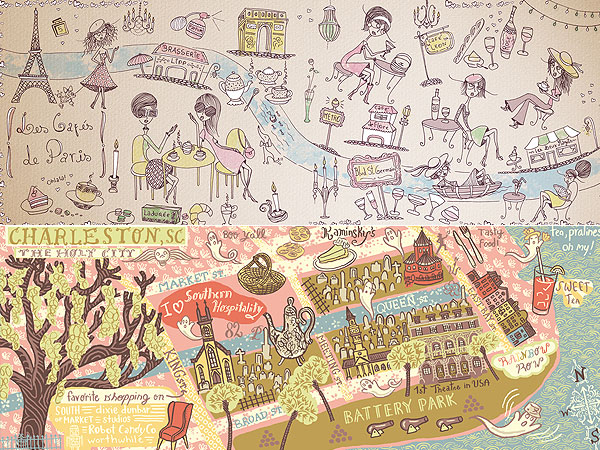 BRASSERIE
LIPP
Les Cafés
de Paris
MÉTRO
Blvd St. Germain
Ladurée
CHARLESTON, SC
THE HOLY CITY
Boo Y'all
Kaminsky's
Tasty
Food!
Tea, pralines
oh my!
MARKET ST
I
Southern
Hospitality
QUEEN ST
SWEET
Tea
KING ST
MEETING ST
RAINBOW
ROW
favorite shopping on
SOUTH
OF MARKET
dixie dunbar
studios
Robot Candy Co
worthwhile
BROAD ST
1st Theatre in USA
BATTERY PARK
W
S